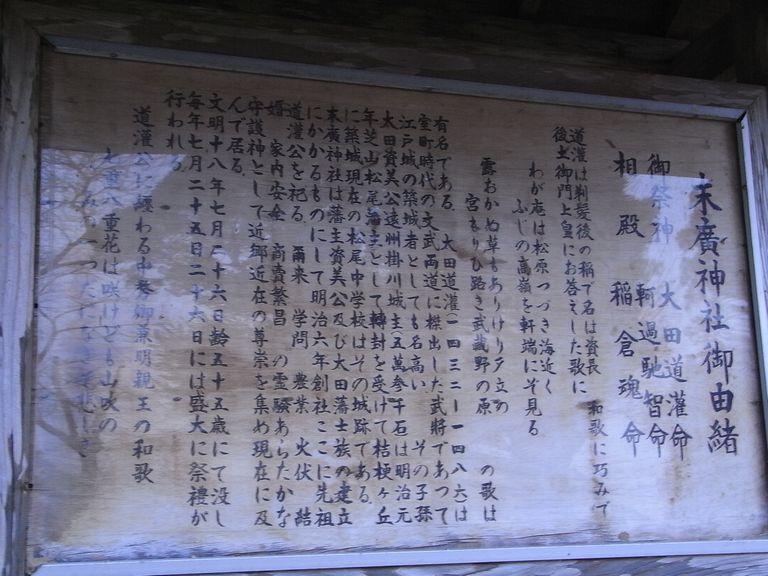 末廣神社御由緒
御祭神 太田道灌命
軻過馳智命
相殿 稲倉魂命
道灌は剃髪後の稱で名は資長 和歌に巧みで
後土御門上皇にお答えした歌に
わが庵は松原つづき海近く
ふじの高嶺を軒端にぞ見る
露おかぬ草もありけり夕立の
空もりひ路き武蔵野の原 の歌は
有名である。太田道灌一四三二ー一四八六は
室町時代の文武両道に傑出した武將であつて
江戸城の築城者としても名高い。その子孫
太田資美公遠州掛川城主五萬参千石は明治元
年芝山松尾藩主として轉封を受けて桔梗ヶ丘
に築城現在の松尾中学校はその城跡である。
末廣神社は藩主資美公及び太田藩士族の建立
にかかるものにして明治六年創社ここに先祖
道灌公を祀る。爾来 学問 農業 火伏 結
婚 家内安全 商賣繁昌 の霊驗あらたかな
守護神として近郷近在の尊崇を集め現在に及
んで居る。
文明十八年七月二十六日齢五十五歳にて没し
毎年七月二十五日二十六日には盛大に祭禮が
行われる。
道灌公に纏わる中務卿兼明親王の和歌
七重八重花は咲けども山吹の
みの一つだになきぞ悲しき